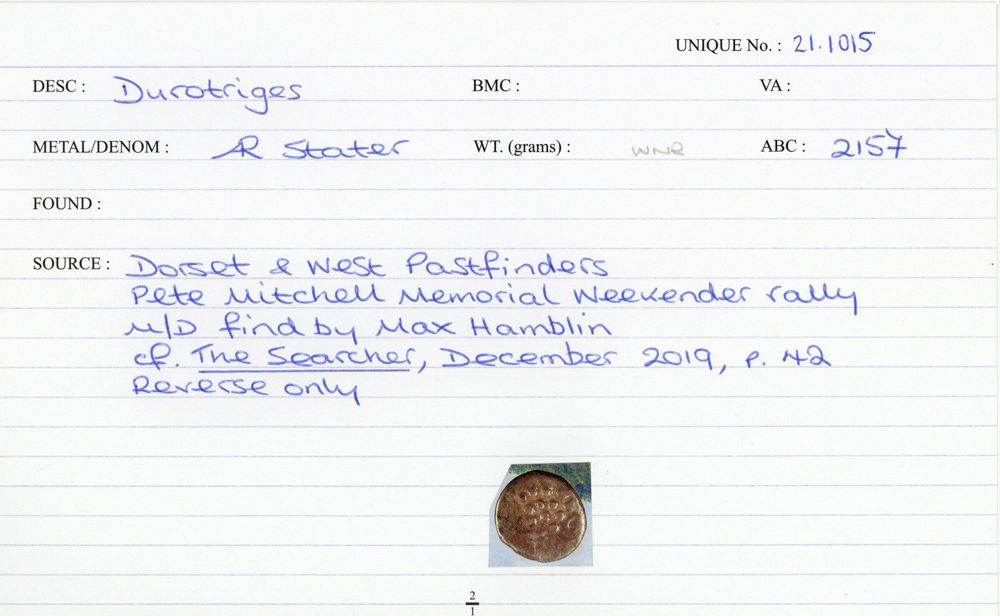 UNIQUE No. : 21.1015
DESC : Durotriges BMC : VA :
METAL/DENOM : AR Stater WT. (grams) : WNR ABC : 2157
FOUND :
SOURCE : Dorset & West Pastfinders
Pete Mitchell Memorial Weekender rally
M/D find by Max Hamblin
cf. The Searcher, December 2019, p. 42
Reverse only
2
1